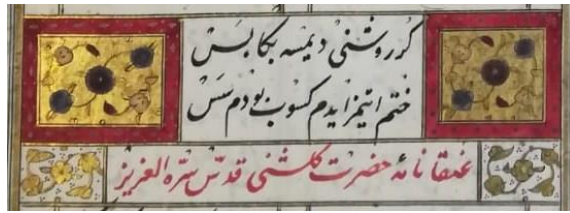 کر روشنی دیمسه بکا بس
ختم ایتمز ایدم کسوب بو دم سس
عنقا نامهٔ حضرت کلشنی قدّس سرّه العزیز